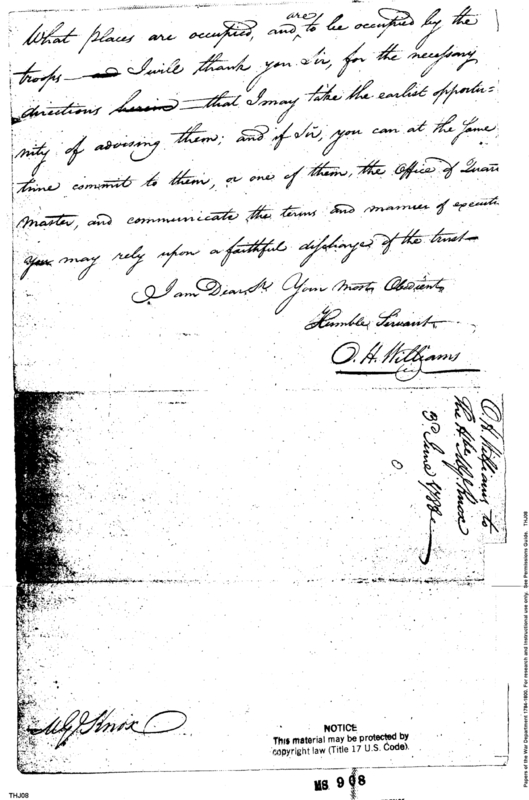 What places are occupied, and are to be occupied by the
troops — and I will thank you Sir, for the necessary
directions herein — that I may take the earlist opportu=
nity of advising them; and if Sir, you can at the same
time commit to them, or one of them, the Office of Quar
Master, and communicate the terms and manner of executi
you may rely upon a faithful discharge of the trust —
I am Dear Sr. Your most Obedient
Humble Servant
O. H. Williams
O H Williams to
The Hble MGl Knox
June 1786
MGl Knox
NOTICE
This material may be protected by
copyright law (Title 17 U.S. Code).
MS 908
THJ08
Papers of the War Department 1784-1800. For research and instructional use only. See Permissions Guide. THJ08